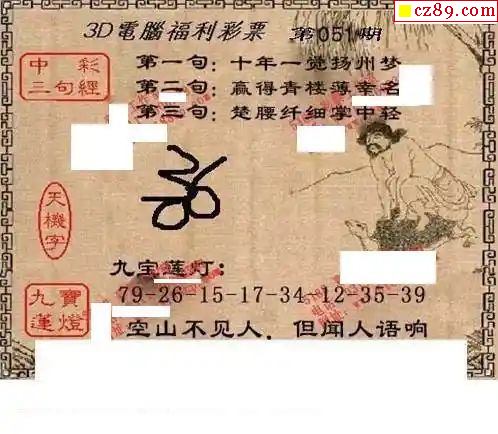 cz89.com
3D電腦福利彩票 第051期
中彩
三句經
第一句：十年一觉扬州梦
第二句：赢得青楼薄幸名
第三句：楚腰纤细掌中轻
天機字
九宝莲灯：
九寶
蓮燈
79-26-15-17-34 12-35-39
空山不见人，但闻人语响